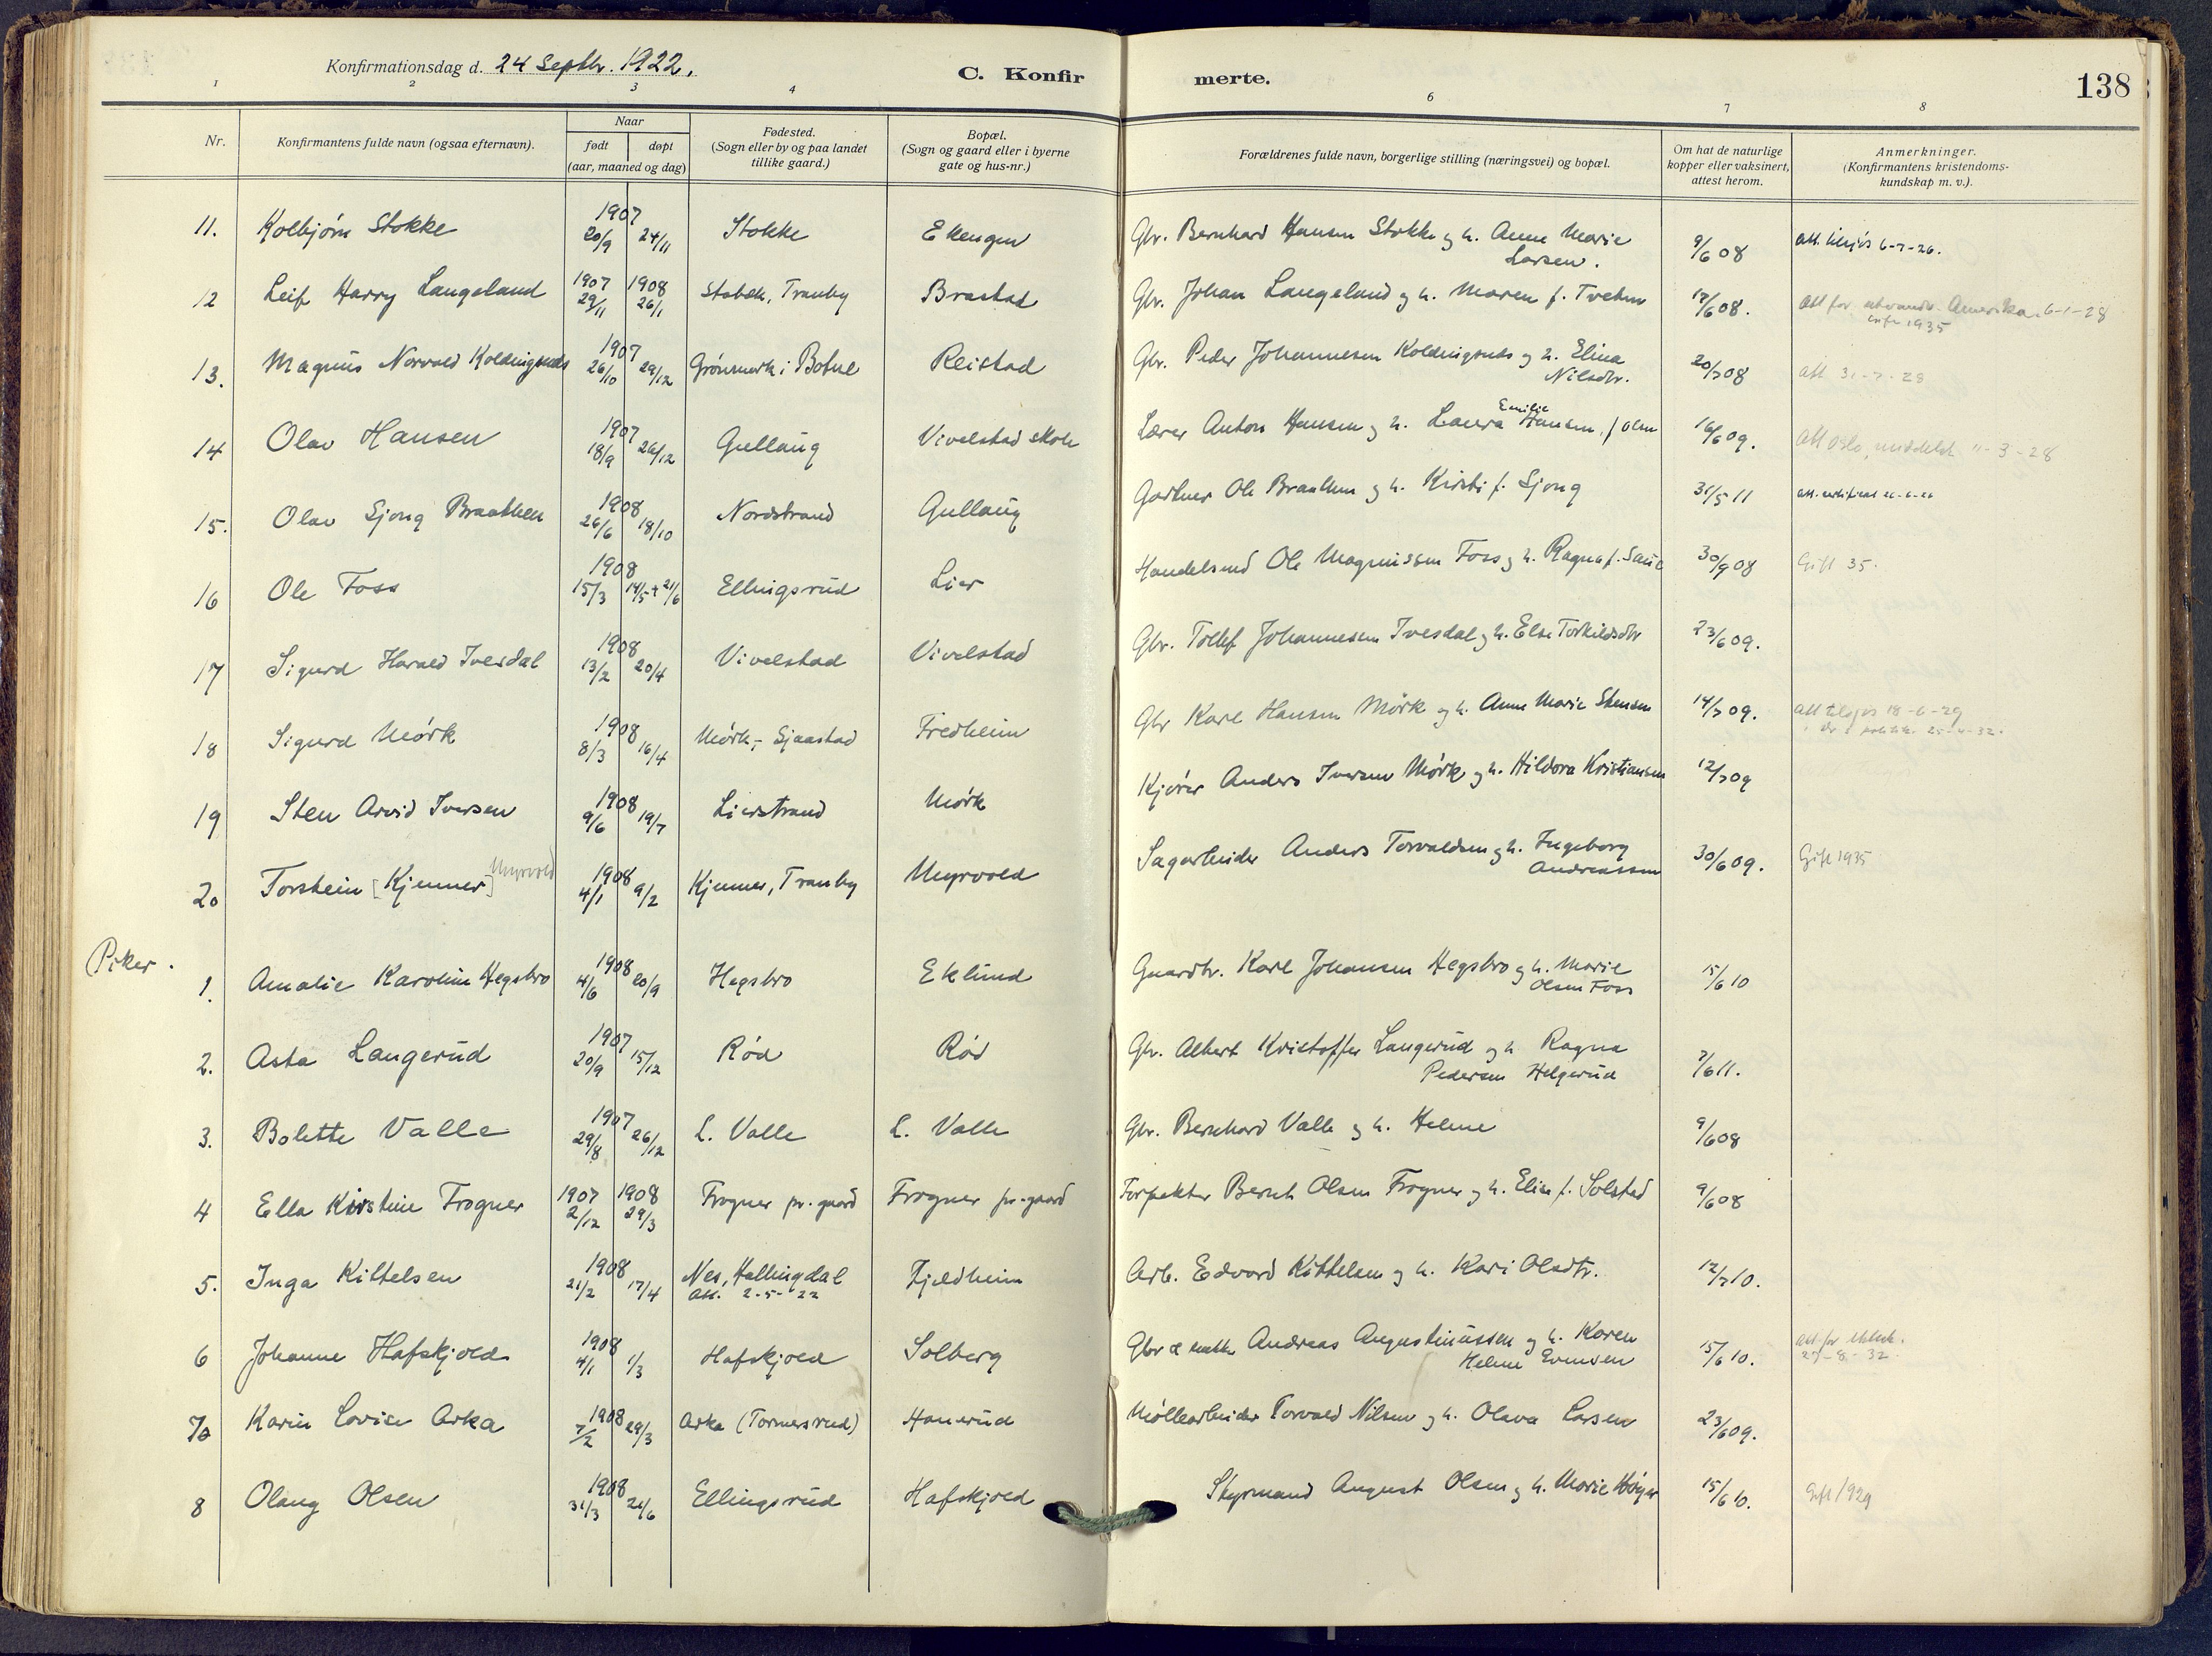 Konfirmationsdag d. 24 Septbr. 1922.
C. Konfirmerte.
138
1 2 3 4 6 7 8
Nr.
Konfirmantens fulde navn (ogsaa efternavn).
Naar
født døpt
(aar, maaned og dag)
Fødested.
(Sogn eller by og paa landet
tillike gaard.)
Bopæl.
(Sogn og gaard eller i byerne
gate og hus-nr.)
Forældrenes fulde navn, borgerlige stilling (næringsvei) og bopæl.
Om hat de naturlige
kopper eller vaksinert,
attest herom.
Anmerkninger.
(Konfirmantens kristendoms-
kundskap m. v.).
11. Kolbjørn Stokke 1907 20/9 24/11 Stokke Ekengen Gbr. Bernhard Hansen Stokke og h. Anne Marie
Larsen. 9/6 08 6-7-26.
12 Leif Harry Langeland 1907 29/11 1908 26/1 Stabæk, Tranby Brastad Gbr. Johan Langeland og h. Maren f. Tveten 17/6 08. att for utvandr. Amerika 6-1-28
1935
13. Magnus Norvald Koldingsnes 1907 26/10 29/12 Grønmark i Botne Reistad Gbr. Peder Johannesen Koldingsnes og h. Elina
Nilsdtr. 20/7 08 att 31-7-28
14 Olav Hansen 1907 18/9 26/12 Gullaug Vivelstad skole Lærer Anton Hansen og h. Laura Emilie Hansen, f Olsen 16/6 09. att Oslo, 11-3-28
15. Olav Sjong Braathen 1908 26/6 18/10 Nordstrand Gullaug Gartner Ole Braathen og h. Kirsti f. Sjong 31/5 11
16 Ole Foss 1908 15/3 14/5 + 21/6 Ellingsrud Lier Handelsmd Ole Magnussen Foss og h. Ragna f. 30/9 08 Gift 35.
17 Sigurd Harald Ivesdal 1908 13/2 20/4 Vivelstad Vivelstad Gbr. Tollef Johannesen Ivesdal og h. Else Torkildsdtr 23/6 09.
18 Sigurd Mørk 1908 8/3 16/4 Mørk, Sjaastad Fredheim Gbr Karl Hansen Mørk og h. Anne Marie Stensen 14/7 09. att 18-6-29
25-4-32.
19 Sten Arvid Iversen 1908 9/6 19/7 Lierstrand Mørk Kjører Anders Iversen Mørk og h. Hildora Kristiansen 12/7 09
20 Torstein [Kjenner] Myrvold 1908 4/1 9/2 Kjenner, Tranby Myrvold Sagarbeider Anders Torvaldsen og h. Ingeborg
Andreassen 30/6 09. Gift 1935
Piker.
1. Amalie Karoline Hegsbro 1908 4/6 20/9 Hegsbro Eklund Gaardbr. Karl Johansen Hegsbro og h. Marie
Olsen Foss 15/6 10
2. Asta Langerud 1907 20/9 15/12 Rød Rød Gbr. Albert Kristoffer Langerud og h Ragna
Pedersen Helgerud 7/6 11.
3. Bolette Valle 1907 29/8 26/12 L. Valle L. Valle Gbr. Bernhard Valle og h. Helene 9/6 08
4 Ella Kirstine Frogner 1907 2/12 1908 29/3 Frogner pr.gaard Frogner pr.gaard Forpakter Bernt Olsen Frogner og h. Elise f. Solstad 9/6 08
5. Inga Kittelsen 1908 21/2 17/4 Nes, Hallingdal
Att. 2-5-22 Fjeldheim Arb. Edvard Kittelsen og h. Kari Olsdtr. 12/7 10.
6 Johanne Hafskjold 1908 4/1 1/3 Hafskjold Solberg Gbr Andreas Augustinussen og h. Karen
Helene Evensen 15/6 10. att for
27-8-32.
7 Karin Lovise Arka 1908 7/2 29/3 Arka (Tornersrud) Hanerud Møllearbeider Torvald Nilsen og h. Olava Larsen 23/6 09.
8 Olaug Olsen 1908 31/3 21/6 Ellingsrud Hafskjold Styrmand August Olsen og h. Marie 15/6 10. Gift 1929